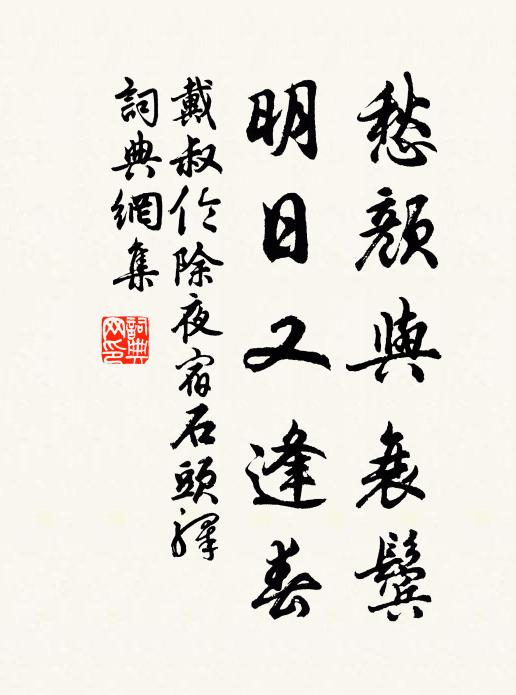 愁顏與衰鬢
明日又逢春
戴叔伦除夜宿石頭驛
詞典網集
詞典网印